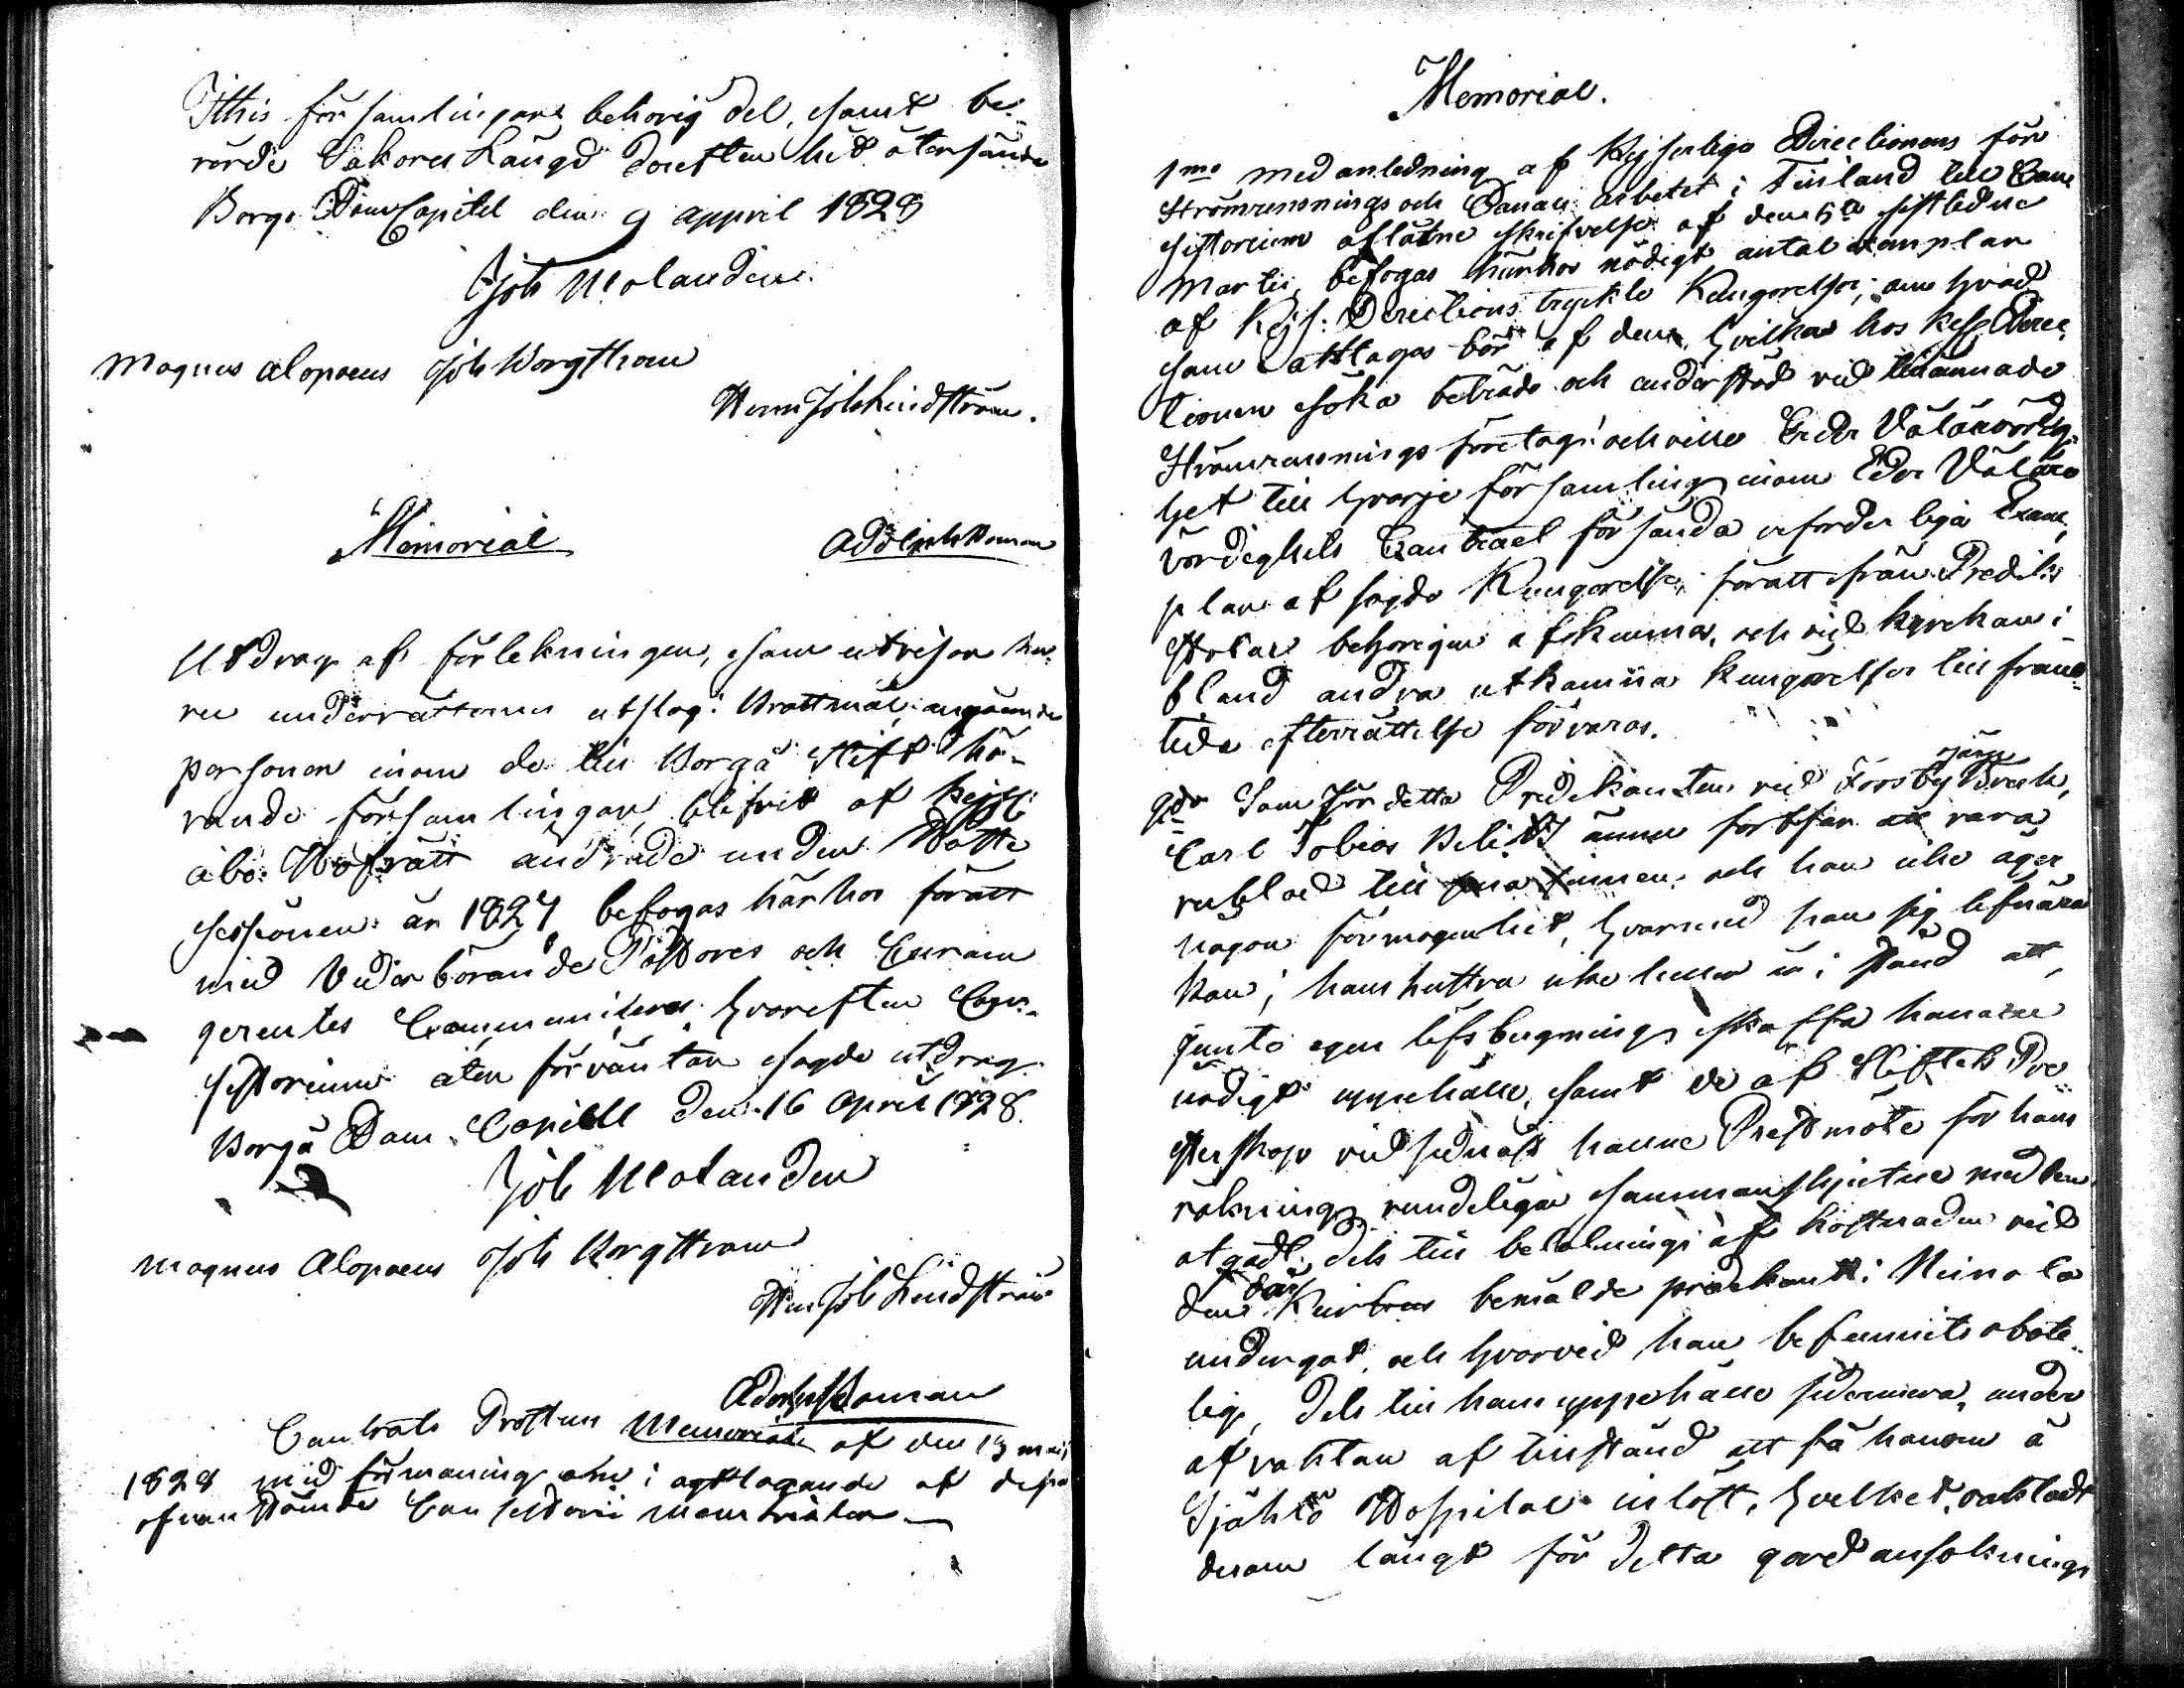 Itthis församlingars behörig del, samt be-
rörde Saköres Längd derefter hit återsända
Borgo DomCapitel den 9 appril 1828
Joh Molander
Magnus Alopaeus Joh Borgstrom
Herm Joh Lindström.
Memorial Adolph Roman
Utdrag af förtekningen, som utvisar hu-
ru underrätternes utslag i Brottmål, angående
personer inom de till Borgå Stift hö-
rande församlingar, blifvit af Kejsl:
Åbo Hofrätt ändrade under Höste
Sessionen år 1827, befogas härhos föratt
med Vederbörande Pastores och Curam
gerentes Communiceras hvarefter Con-
sistorium åter förväntar sagde utdrag.
Borgå Dom Capitel den 16 April 1828.
Joh Molander
Magnus Alopaeus Joh Borgstrom
Herm Joh Lindström
Adolph Roman
Contrats Prosten Memorial af den 13 maij
1828 med förmaning om i agttagande af dessa
ofvan stående Consistorii memorialer
Memorial.
1mo Med anledning af Kejserliga Directionens för
Strömrensnings och Canal arbetet i Finland till Con-
sistorium aflåtne skrifvelse af den 5te sistledne
Martii, befogas härhos nödigt antal exemplar
af Kejs: Directions tryckte Kungörelse, om hvad
som iakttagas bör af dem, hvilka hos Kejs Direc-
tionen söka biträde och understöd vid tillämnade
Strömrensnings företag; och ville Eder Välärevördig-
het till hvarje församling inom Eder Väläre-
vördighets Contract försända erforderliga Exem-
plar af sagde Kungörelse, föratt från Prediks
stolar behörigen afkunnas, och vid kyrkan i-
bland andra utkomna kungörelser till fram-
tida efterrättelse förvaras.
2do Som för detta Predikanten vid Forsby Bruk,
Carl Tobias annu fortfar att vara
rubbad till sina sinnen, och han icke äger
någon förmögenhet, hvarmed han sig lifnära
kan; hans hustru icke heller är i stånd att,
jemte egen lifsbergning, skaffa honom
nödigt uppehälle, samt de af Stiftets Pre-
sterskap vid sidnast hållne Prestmöte för hans
räkning vundeliga sammanskjutne medlen
åtgådt, dels till betalning af kostnaden vid
den Kur bemälde predikant i Heinola
undergåt, och hvarvid han befunnits obote-
lig, dels till hans uppehälle sedermera, under
afvaktan af tillstånd att få honom å
Själö Hospital inlöst, hvilket, oaktadt
derom längst för detta gord ansöknings